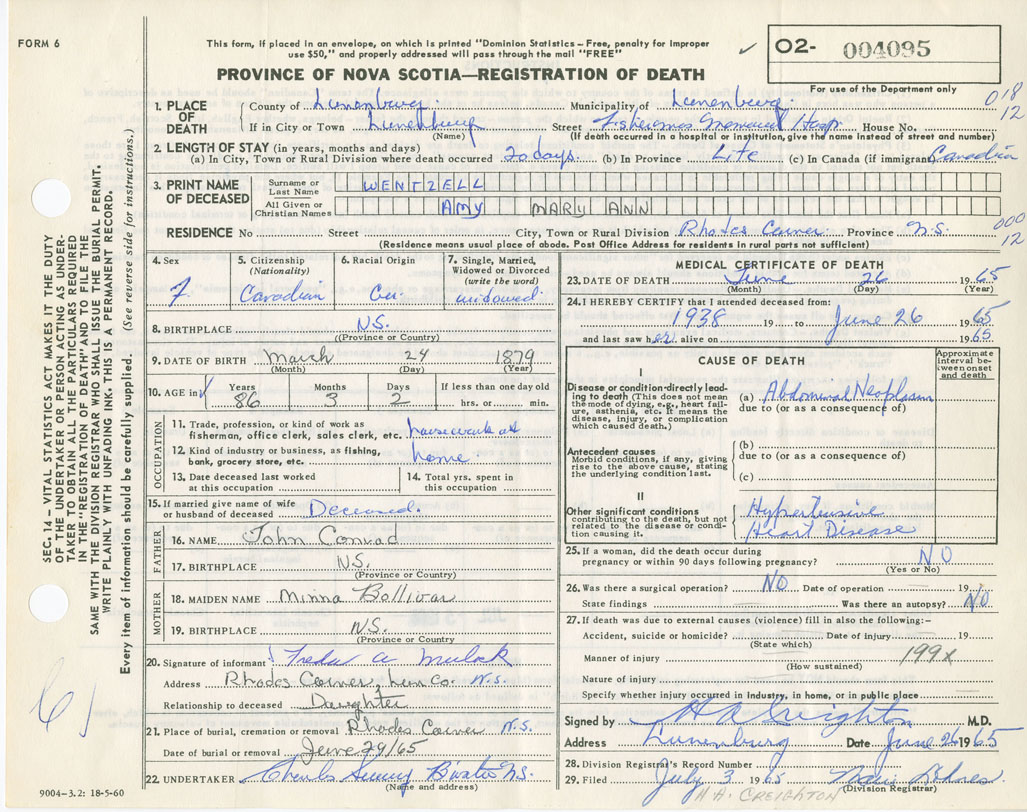 FORM 6
This form, if placed in an envelope, on which is printed "Dominion Statistics – Free, penalty for improper
use $50," and properly addressed will pass through the mail "FREE"
✓
O2- 004095
PROVINCE OF NOVA SCOTIA—REGISTRATION OF DEATH
For use of the Department only
018
12
1. PLACE OF DEATH
County of Lunenburg. Municipality of Lunenburg.
If in City or Town Lunenburg Street Fishermens Memorial Hosp. House No.
(Name) (If death occurred in a hospital or institution, give the name instead of street and number)
2. LENGTH OF STAY (in years, months and days)
(a) In City, Town or Rural Division where death occurred 20 days. (b) In Province Life (c) In Canada (if immigrant) Canadian
3. PRINT NAME OF DECEASED
Surname or Last Name WENTZELL
All Given or Christian Names AMY MARY ANN
000
12
RESIDENCE No Street City, Town or Rural Division Rhodes Corner Province N.S.
(Residence means usual place of abode. Post Office Address for residents in rural parts not sufficient)
4. Sex
F.
5. Citizenship (Nationality)
Canadian
6. Racial Origin
7. Single, Married, Widowed or Divorced (write the word)
widowed
8. BIRTHPLACE N.S.
(Province or Country)
9. DATE OF BIRTH March 24 1879
(Month) (Day) (Year)
10. AGE in ✓
Years Months Days If less than one day old
86 3 2 hrs. or min.
OCCUPATION
11. Trade, profession, or kind of work as
fisherman, office clerk, sales clerk, etc. housework at
12. Kind of industry or business, as fishing,
bank, grocery store, etc. home
13. Date deceased last worked
at this occupation
14. Total yrs. spent in
this occupation
15. If married give name of wife
or husband of deceased Deceased.
FATHER
16. NAME John Conrad
17. BIRTHPLACE N.S.
(Province or Country)
MOTHER
18. MAIDEN NAME Minna Bollivar
19. BIRTHPLACE N.S.
(Province or Country)
20. Signature of informant Freda A
Address Rhodes Corner, Lun Co. N.S.
Relationship to deceased Daughter
21. Place of burial, cremation or removal Rhodes Corner N.S.
Date of burial or removal June 29/65
22. UNDERTAKER N.S.
(Name and address)
9004-3.2: 18-5-60
MEDICAL CERTIFICATE OF DEATH
23. DATE OF DEATH June 26 1965
(Month) (Day) (Year)
24. I HEREBY CERTIFY that I attended deceased from:
1938 19 to June 26 1965
and last saw her alive on 1965.
CAUSE OF DEATH
Approximate interval between onset and death
I
Disease or condition directly leading
to death (This does not mean
the mode of dying, e.g., heart failure,
asthenia, etc. It means the
disease, injury, or complication
which caused death.)
(a) Abdominal Neoplasm
due to (or as a consequence of)
Antecedent causes
Morbid conditions, if any, giving
rise to the above cause, stating
the underlying condition last.
(b)
due to (or as a consequence of)
(c)
II
Other significant conditions
contributing to the death, but not
related to the disease or condition
causing it.
Hypertensive
Heart Disease
25. If a woman, did the death occur during
pregnancy or within 90 days following pregnancy? NO
(Yes or No)
26. Was there a surgical operation? NO Date of operation 19
State findings Was there an autopsy? NO
27. If death was due to external causes (violence) fill in also the following:-
Accident, suicide or homicide? Date of injury 19
(State which)
Manner of injury 199X
(How sustained)
Nature of injury
Specify whether injury occurred in industry, in home, or in public place
Signed by H A Creighton M.D.
Address Lunenburg Date June 26 1965
28. Division Registrar's Record Number
29. Filed July 3 1965
(Division Registrar)
H.A. CREIGHTON
SEC. 14 – VITAL STATISTICS ACT MAKES IT THE DUTY
OF THE UNDERTAKER OR PERSON ACTING AS UNDER-
TAKER TO OBTAIN ALL THE PARTICULARS REQUIRED
IN THE "REGISTRATION OF DEATH" AND TO FILE THE
SAME WITH THE DIVISION REGISTRAR WHO SHALL ISSUE THE BURIAL PERMIT.
WRITE PLAINLY WITH UNFADING INK. THIS IS A PERMANENT RECORD.
Every item of information should be carefully supplied. (See reverse side for instructions.)